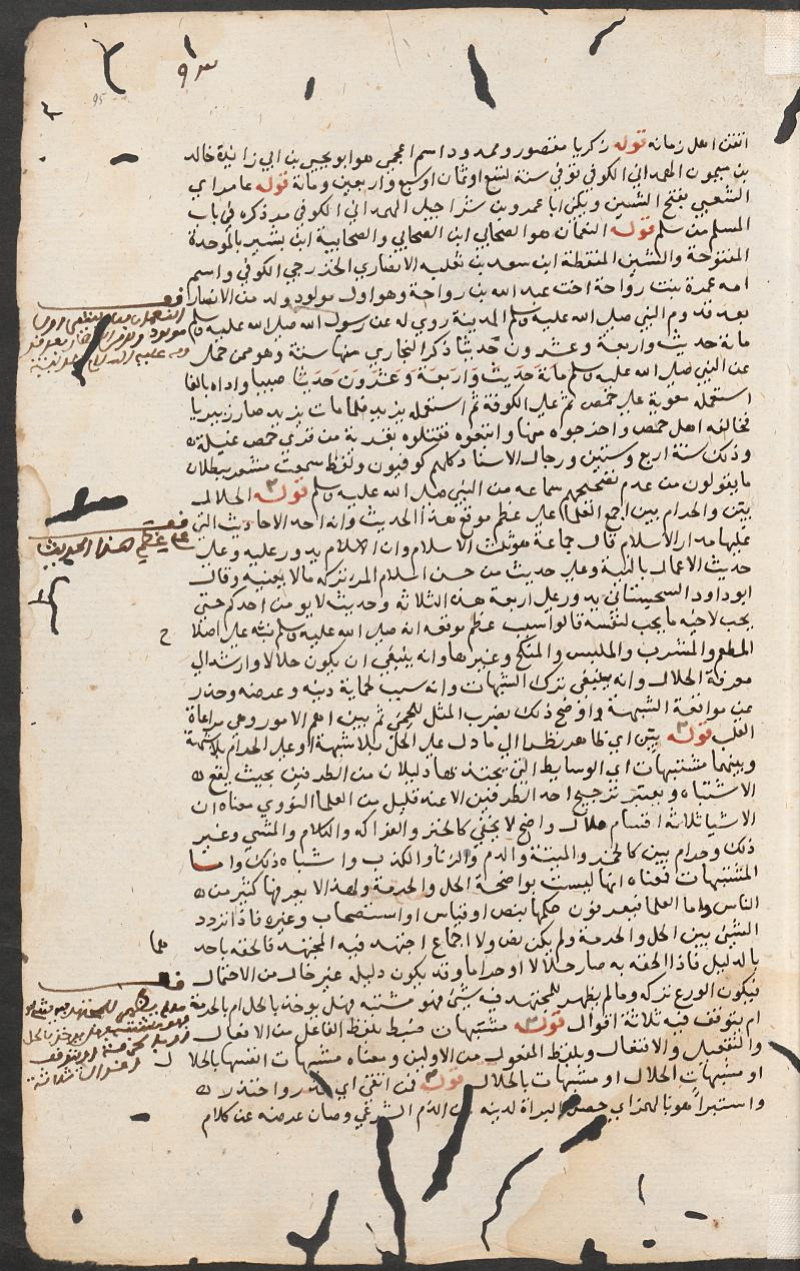 ٩٣
95
اتقن اهل زمانه قوله زكريا مقصور وممدود اسم اعجمي هو ابو يحيى بن ابي زائدة خالد
بن ميمون الهمداني الكوفي توفي سنة لسبع او ثمان او تسع واربعين ومائة قوله عامر اي
الشعبي بفتح الشين ويكنى ابا عمرو بن شراحيل الهمداني الكوفي مر ذكره في باب
المسلم من سلم قوله النعمان هو الصحابي ابن الصحابي والصحابية ابن بشير بالموحدة
المفتوحة والشين المنقطة ابن سعد بن ثعلبه الانصاري الخزرجي الكوفي واسم
امه عمرة بنت رواحة اخت عبد الله بن رواحة وهو اول مولود ولد من الانصار
بعد قدوم النبي صلى الله عليه وسلم المدينة روي له عن رسول الله صلى الله عليه وسلم
مائة حديث واربعة وعشرون حديثا ذكر البخاري منها ستة وهو ممن حمل
عن النبي صلى الله عليه وسلم مائة حديث واربعة وعشرون حديثا صبيبا واداه بالغا
استعمله معوية على حمص ثم على الكوفة ثم استعمله يزيد فلما مات يزيد صار زبيريا
فخالفه اهل حمص واخرجوه منها واتبعوه فقتلوه بقرية من قرى حمص غيلة
وذلك سنة اربع وستين ورجال الاسناد كلهم كوفيون ولفظ سمعت مشعر ببطلان
ما يقولون من عدم تصحيحهم سماعه من النبي صلى الله عليه وسلم قوله الحلال
بين والحرام بين اجمع العلما على عظم موقع هذا الحديث وانه احد الاحاديث التي
عليها مدار الاسلام قال جماعة هو ثلث الاسلام وان الاسلام يدور عليه وعلى
حديث الاعمال بالنية وعلى حديث من حسن اسلام المرء تركه ما لا يعنيه وقال
ابو داود السجستاني يدور على اربعة هذه الثلاثة وحديث لا يومن احدكم حتى
يحب لاخيه ما يحب لنفسه قالوا سبب عظم موقعه انه صلى الله عليه وسلم نبه على اصلا
المطعم والمشرب والملبس والمنكح وغيرها وانه ينبغي ان يكون حلالا وارشد الى
معرفة الحلال وانه ينبغي ترك الشبهات وانه سبب لحماية دينه وعرضه وحذر
عن مواقعة الشبهة واوضح ذلك بضرب المثل للحمى ثم بين اهم الامور وهي مراعاة
القلب قوله بين اي ظاهر نظرا الى ما دل على الحل بلا شبهة او على الحرام بلا شبهة
وبينهما مشتبهات اي الوسايط التي يجتذبها دليلان من الطرفين بحيث يقع
الاشتباه ويعسر ترجيح احد الطرفين الا عند قليل من العلما النووي معناه ان
الاشيا ثلاثة اقسام حلال واضح لا يخفى كالخبز والفواكه والكلام والمشي وغير
ذلك وحرام بين كالخمر والميتة والدم والزنا والكذب واشباه ذلك واما
المشتبهات فمعناه انها ليست بواضحة الحل والحرمة ولهذا لا يعرفها كثير من
الناس واما العلما فيعرفون حكمها بنص او قياس او استصحاب وغيره فاذا تردد
الشيء بين الحل والحرمة ولم يكن نص ولا اجماع اجتهد فيه المجتهد فالحقه باحدهما
بالدليل فاذا الحقه به صار حلالا او حراما وقد يكون دليله غير خال من الاحتمال
فيكون الورع تركه وما لم يظهر للمجتهد فيه شيء فهو مشتبه فهل يوخذ بالحل ام بالحرمة
ام يتوقف فيه ثلاثة اقوال قوله مشتبهات ضبط بلفظ الفاعل من الافعال
والتفعيل والافتعال وبلفظ المفعول من الاولين ومعناه مشبهات انفسها بالحلال
او مشبهات الحلال او مشبهات بالحلال قوله فمن اتقى اي حذر واحتذر
واستبرا هو بالهمز اي حصل البراة لدينه من الذم الشرعي وصان عرضه عن كلام
قف
النعمان
مولود
عليه السلام
قف
على عظم هذا الحديث
ح
قف
للمجتهد فيه شيء
فهو مشتبه
بالحل